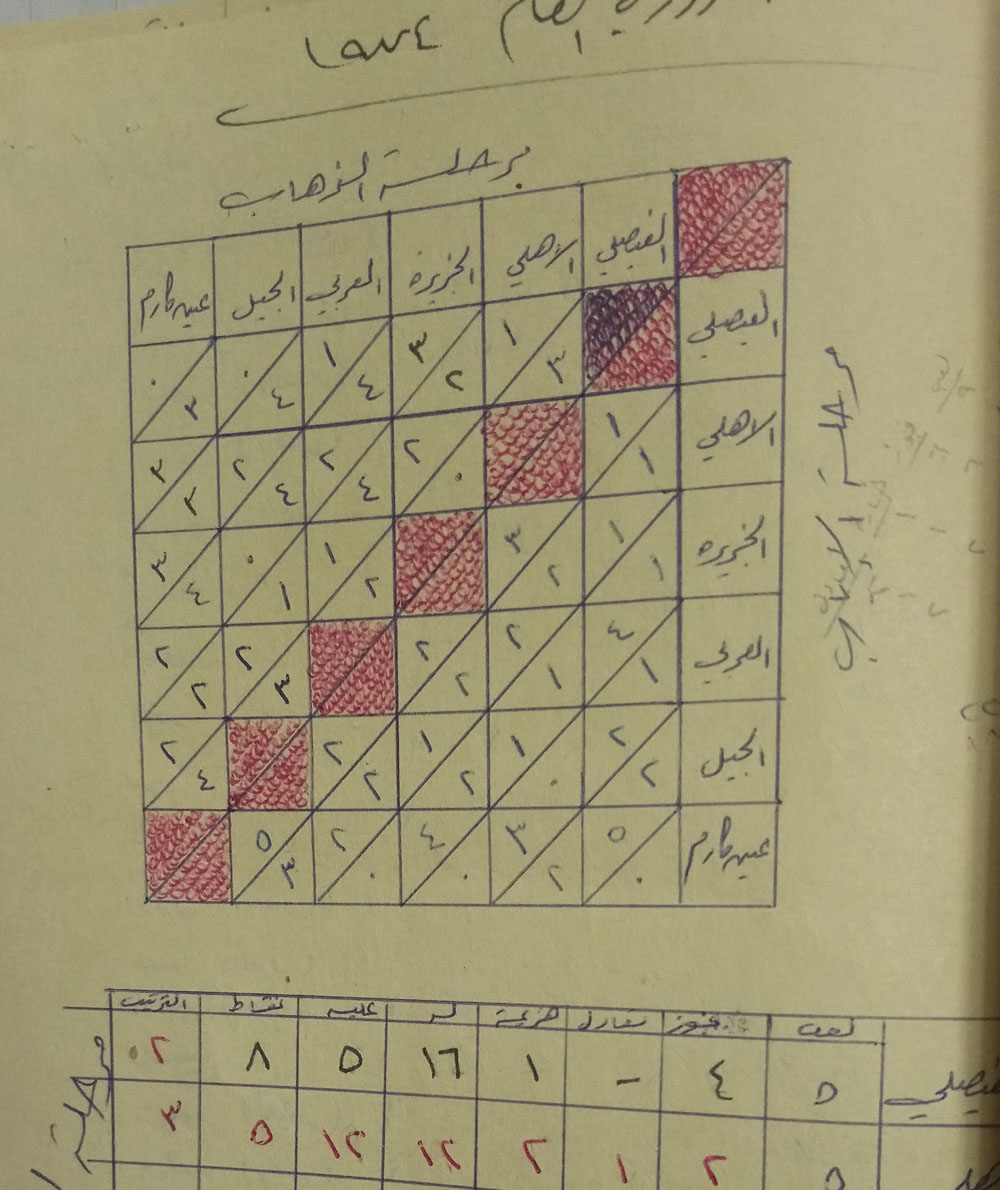 العام ١٩٧٤
مرحلة الذهاب
الفيصلي الأهلي الجزيرة العربي الجيل عين كارم
الفيصلي ١ ٣ ٣ ٢ ١ ٤ ٠ ٤ ٠ ٣
الاهلي ١ ١ ٢ ٠ ٢ ٤ ٢ ٤ ٣ ٣
الجزيرة ١ ١ ٣ ٢ ١ ٢ ٠ ١ ٣ ٤
العربي ٤ ١ ٢ ١ ٢ ٢ ٢ ٣ ٢ ٢
الجيل ٢ ٢ ١ ٠ ١ ٢ ٢ ٢ ٢ ٤
عين كارم ٥ ٠ ٣ ٢ ٤ ٠ ٢ ٠ ٥ ٣
مرحلة الاياب
لعب فوز تعادل هزيمة له عليه نقاط الترتيب
فيصلي ٥ ٤ - ١ ١٦ ٥ ٨ ٢
٥ ٢ ١ ٢ ١٢ ١٢ ٥ ٣
مرحلة